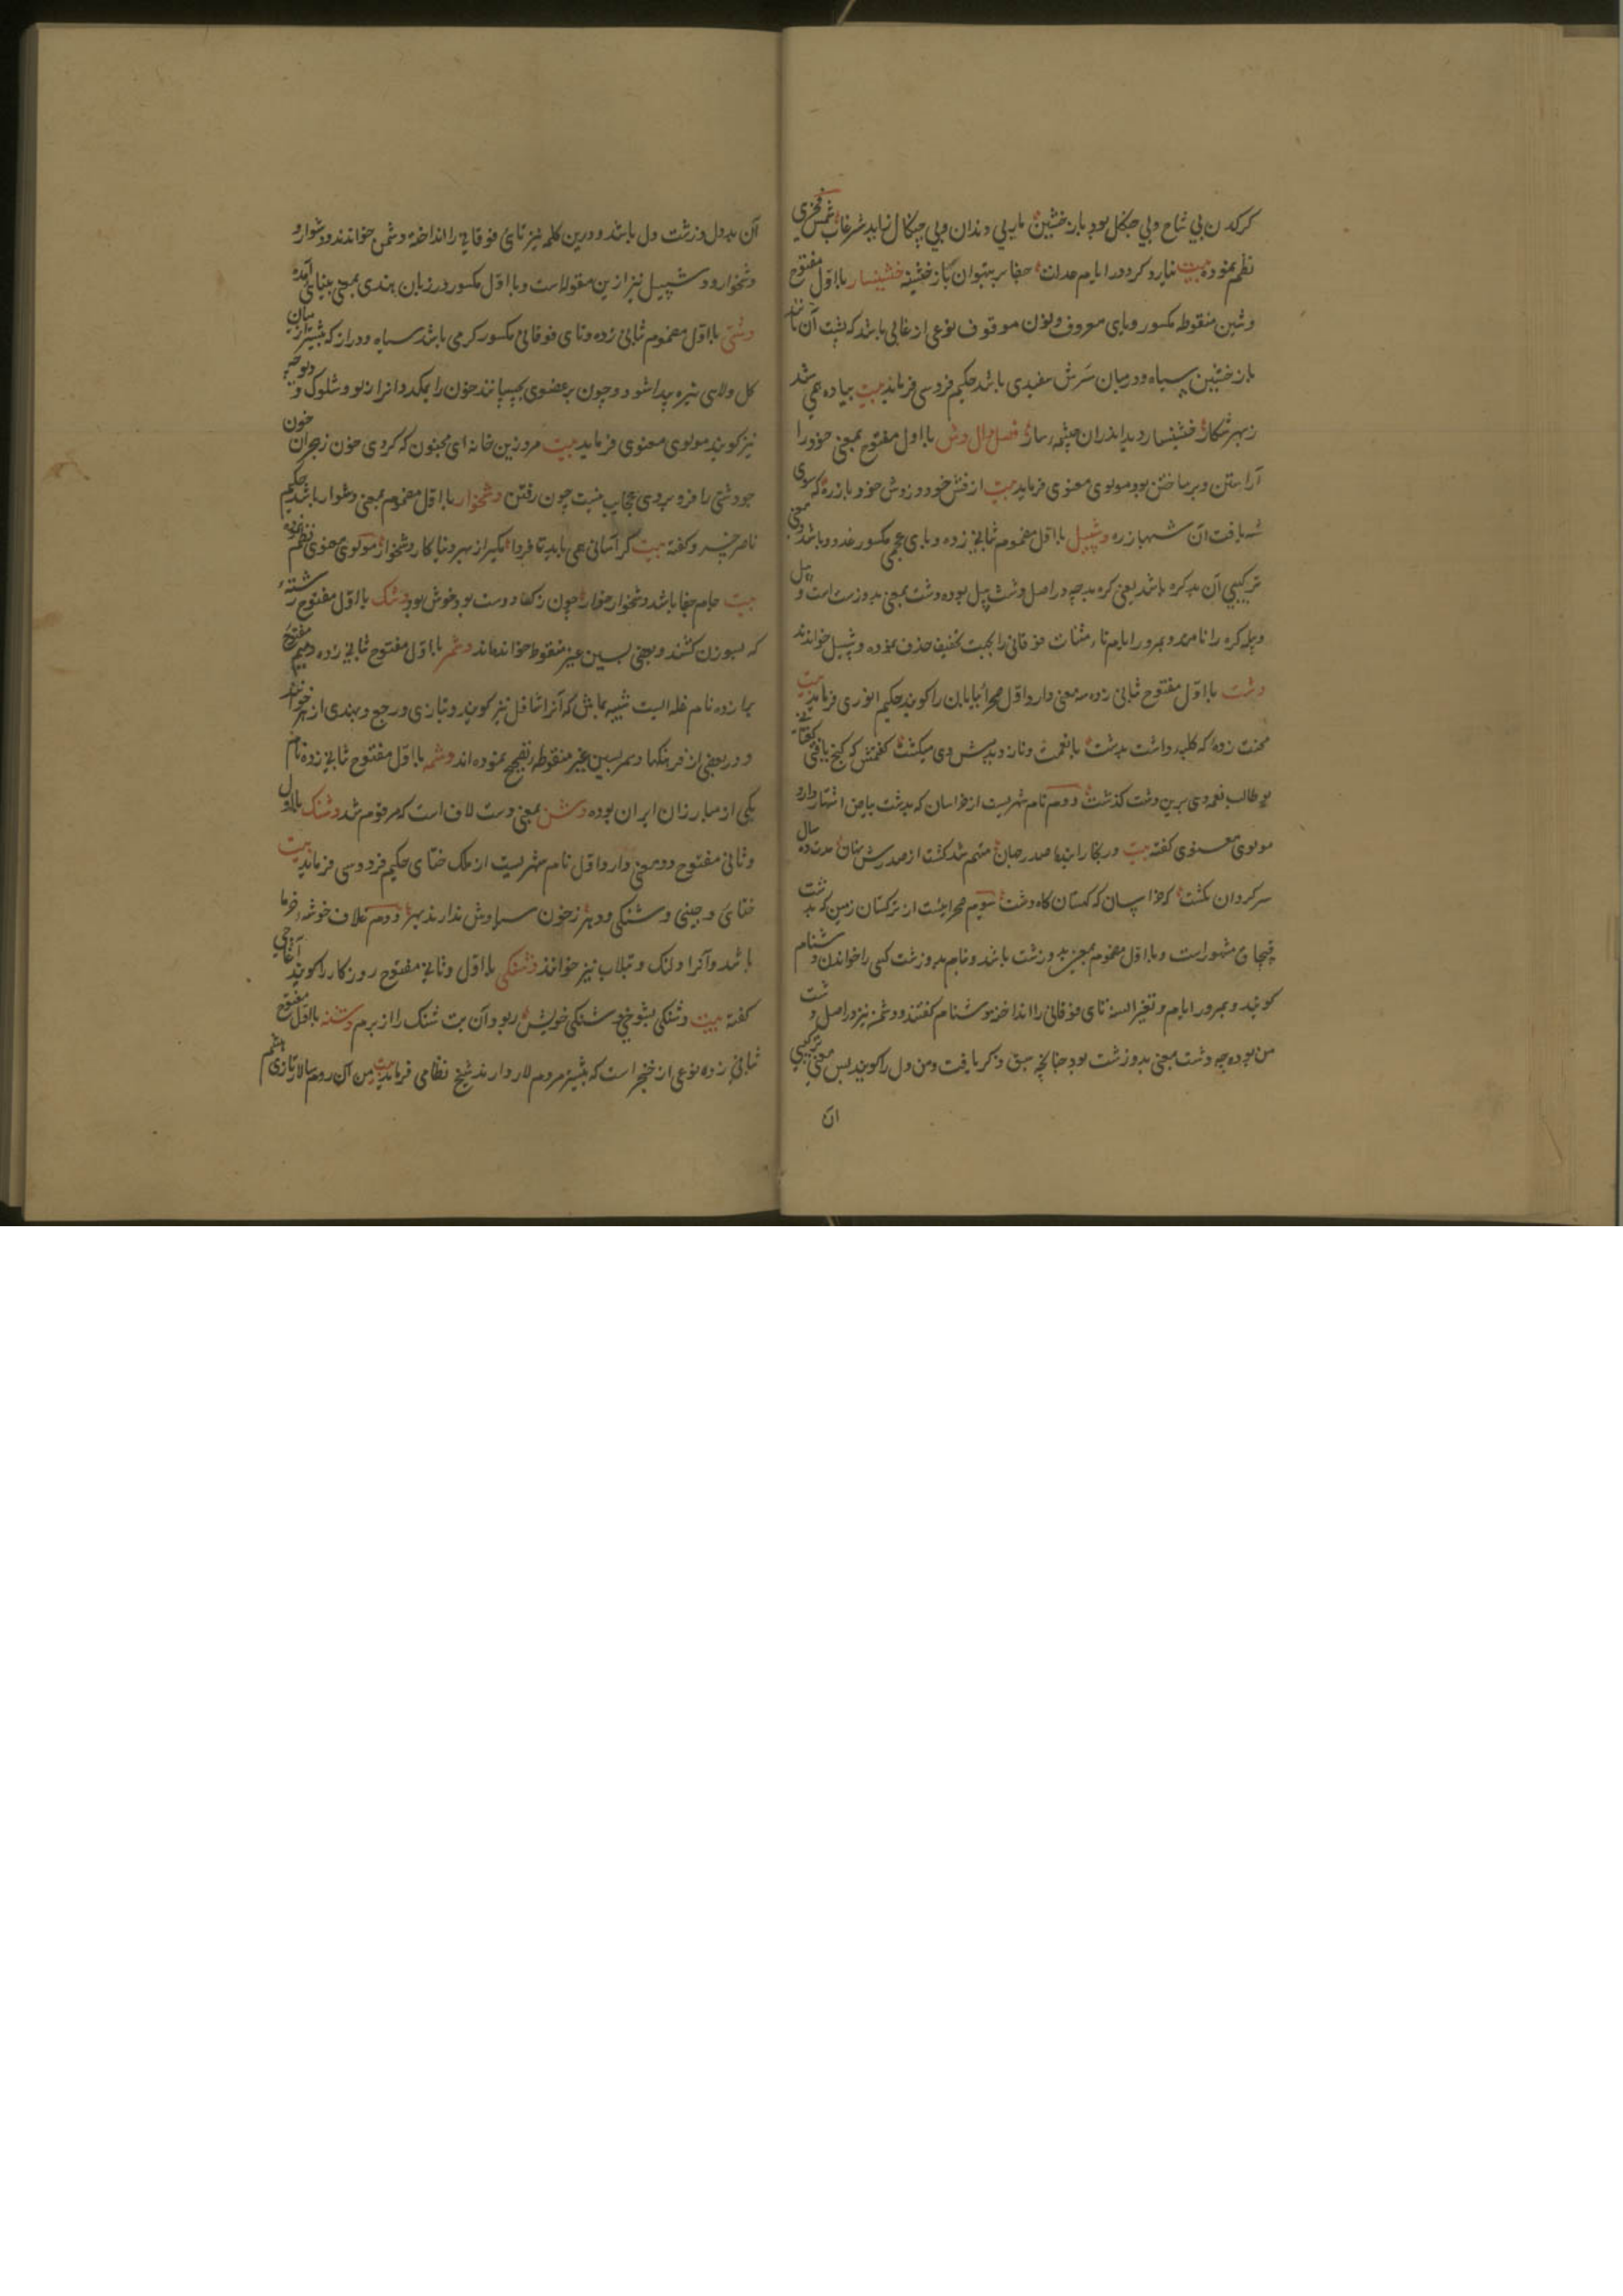 کرکدن بی شاخ و بی جنکل بود باز خشین مار بی دندان و بی چنکال نباید شرغاب شمس فخری
نظم نموده بیت نیارد کرد در ایام عدلت جفا بر تیهوان باز خشینه خشینسار با اول مفتوح
و شین منقوطه مکسور و یای معروف و نون موقوف نوعی از غابی باشد که پشت آن مانند
باز خشین سیاه و درمیان سرش سفیدی باشد حکیم فردوسی فرماید بیت پیاده همی شد
ز بهر شکار خشنسار دید اندران چشمه سار فصل دال دش با اول مفتوح بمعنی خود را
آراستن و برساختن بود مولوی معنوی فرماید بیت از فش خود و ز دش خود باز ره که سوی
شه یافت آن شهباز ره دشپیل با اول مضموم ثانی زده و بای عجمی مکسور غدود باشد و معنی
ترکیبی آن بد کره باشد یعنی کره بد چه در اصل دشت پیل بوده دشت بمعنی بد و زشت است و پیل
و پله کره را نامند و بمرور ایام تاء مثنات فوقانی را بجهت تخفیف حذف نموده دشپیل خوانند
دشت با اول مفتوح ثانی زده سه معنی دارد اول صحرا بیابان را کویند حکیم انوری فرماید بیت
محنت زده که کلبه داشت بدشت با نعمت و ناز دید پیش وی میکشت کفتمش که کنج یافتی کفتا نی
بو طالب نعمه دی برین دشت کذشت دوم نام شهریست از خراسان که بدشت بیاض اشتهار دارد
مولوی معنوی کفته بیت در بخارا بنده صدر جهان متهم شد کشت از صدرش نهان مدت ده سال
سرکردان بکشت که خراسان که کهستان کاه دشت سیوم صحراییست از ترکستان زمین که بدشت
قبچاق مشهورست و با اول مضموم بمعنی بد و زشت باشد و نام بد و زشت کسی را خواندن دشنام
کویند و بمرور ایام و تغیر السنه تای فوقانی را انداخته دشنام کفتند و دشمن نیز در اصل دشت
من بوده چه دشت معنی بد و زشت بود چنانچه سبق ذکر یافت و من دل را کویند پس معنی ترکیبی
ان
آن بد دل و زشت دل باشد و درین کلمه نیز تای فوقانی را انداخته دشمن خوانند و دشوار و
دشخوار و دشپیل نیز ازین مقوله است و با اول مکسور در زبان هندی بمعنی بینای آمده
دشتی با اول مضموم ثانی زده و تای فوقانی مکسور کرمی باشد سیاه و دراز که بیشتر از میان
کل و لای تیره پیدا شود و چون بر عضوی بچسپانند خون را بمکد و انرا زلو و شلوک و دیوچه
نیز کویند مولوی معنوی فرماید بیت مرو زین خانه ای مجنون که کردی خون ز هجران خون
چو دشتی را فرو بردی عجایب نیست چون رفتن دشخوار با اول مضموم بمعنی دشوار باشد حکیم
ناصر خسرو کفته بیت کر آسانی همی باید تا فردا مکیر از بهر دنیا کار دشخوار مولوی معنوی نظم نموده
بیت جام جفا باشد دشخوار خوار چون ز کف دوست بود خوش بود دشک با اول مفتوح رشته
که بسوزن کشند و بعضی بسین غیر منقوطه خوانده اند دشمر با اول مفتوح ثانی زده و میم مفتوح
برا زده نام غله ایست شبیه بماش که آنرا شاخل نیز کویند و بتازی و رجع و بهندی ارهر خوانند
و در بعضی از فرهنکها دسمر بسین غیر منقوطه تصحیح نموده اند دشمه با اول مفتوح ثانی زده نام
یکی از مبارزان ایران بوده دشن بمعنی دست لاف است که مرقوم شد دشنک با اول
و ثانی مفتوح دو معنی دارد اول نام شهریست از ملک ختای حکیم فردوسی فرماید بیت
ختای و چینی و دشنکی و وهر ز خون سیاوش ندارند بهر دوم غلاف خوشه خرما
باشد و آنرا ولنک و تبلاب نیز خوانند دشنکی با اول و ثانی مفتوح روزکار را کویند آغاجی
کفته بیت دشنکی بشوخی دشنکی خویش ربود آن بت شنک را از برم دشنه با اول مفتوح
ثانی زده نوعی از خنجر است که بیشتر مردم لار دارند شیخ نظامی فرماید بیت من آن روم سالار تازی هشم